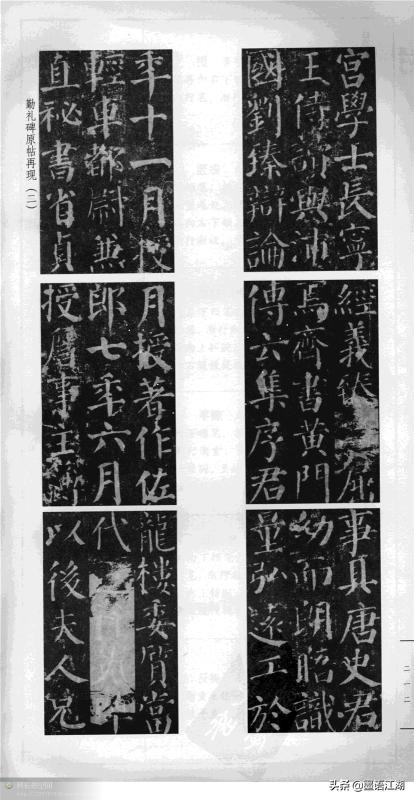 宫學士長寧
王侍讀與沛
國劉臻辯論
經義臻屈
焉齊書黄門
傳云集序君
事具唐史君
幼而朗晤識
量弘遠工於
年十一月授
輕車都尉兼
直秘書省貞
月授著作佐
郎七年六月
授詹事主簿
龍樓委質當
代
以後夫人兄
勤礼碑原帖再现（二）
二一二
头条 @墨语江湖